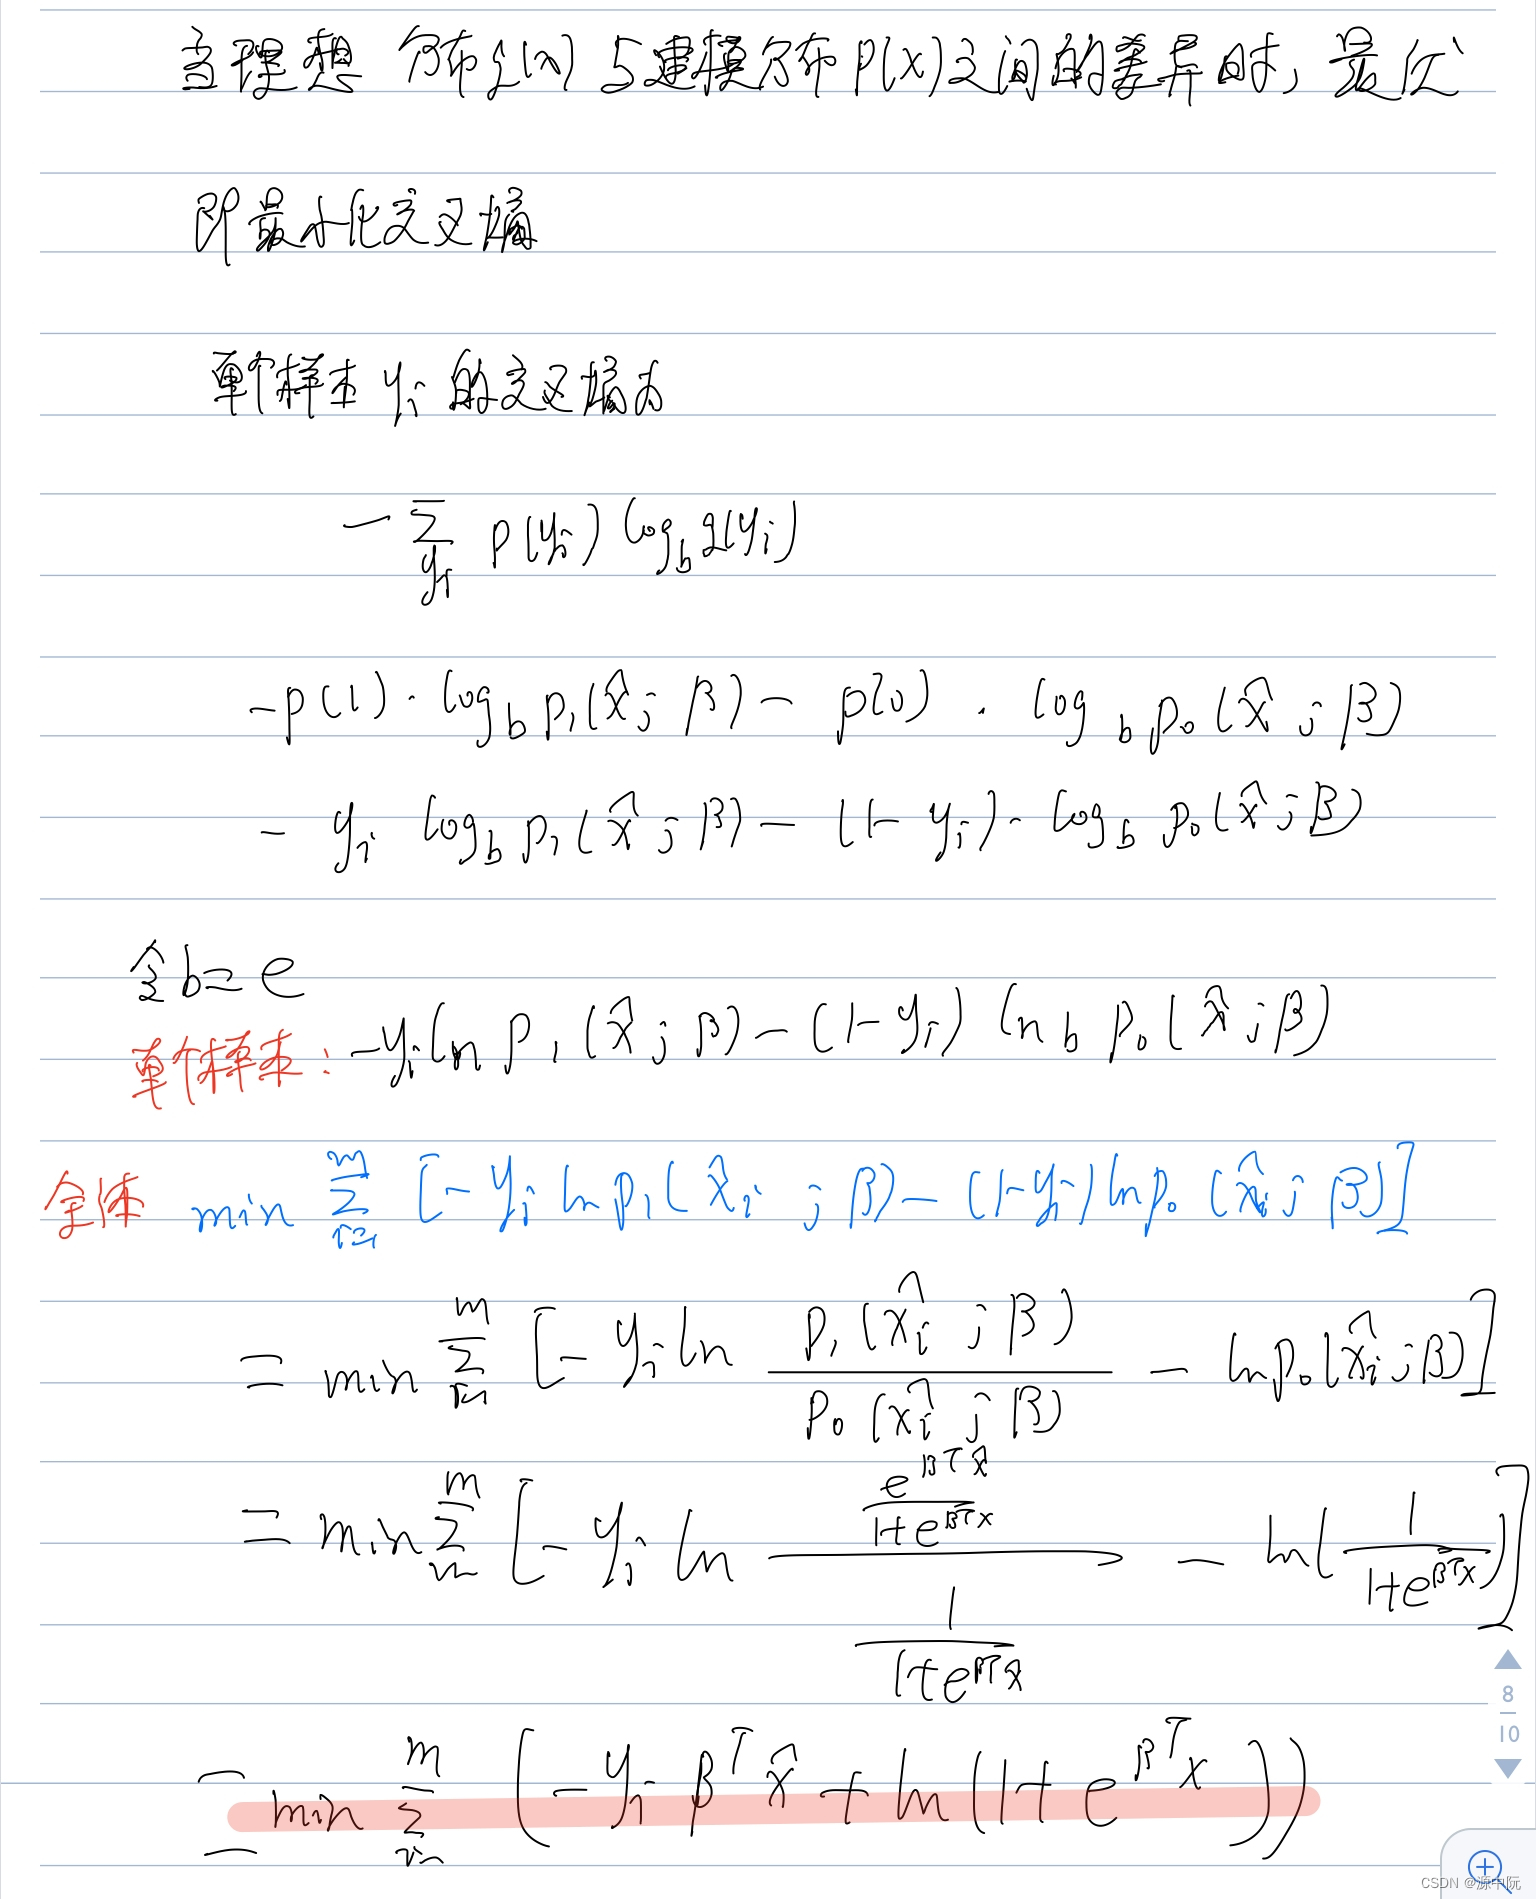 当理想 分布q(x) 与建模分布p(x)之间的差异时，最优
即最小化交叉熵
单个样本 yᵢ 的交叉熵为
- ∑_{yᵢ} p(yᵢ) log_b q(yᵢ)
-p(1)·log_b p₁(x̂;β) - p(0)·log_b p₀(x̂;β)
- yᵢ log_b p₁(x̂;β) - (1-yᵢ)·log_b p₀(x̂;β)
令b=e
单个样本: -yᵢ ln p₁(x̂;β) - (1-yᵢ) ln_b p₀(x̂;β)
全体 min ∑_{i=1}^{m} [-yᵢ ln p₁(x̂ᵢ;β) - (1-yᵢ) ln p₀(x̂ᵢ;β)]
= min ∑_{i=1}^{m} [-yᵢ ln \frac{p₁(x̂ᵢ;β)}{p₀(x̂ᵢ;β)} - ln p₀(x̂ᵢ;β)]
= min ∑_{i=1}^{m} [-yᵢ ln \frac{\frac{e^{β^T x̂}}{1+e^{β^T x}}}{\frac{1}{1+e^{β^T x̂}}} - ln(\frac{1}{1+e^{β^T x}})]
= min ∑_{i=1}^{m} (-yᵢ β^T x̂ + ln(1+e^{β^T x}))
8
10
CSDN @源中阮